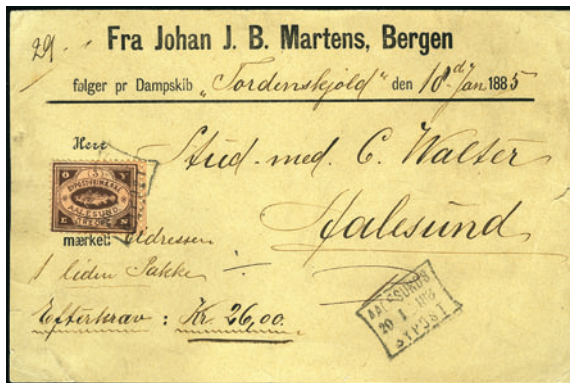 29.
Fra Johan J. B. Martens, Bergen
følger pr Dampskib „Tordenskjold“ den 18de Jan. 1885
Herr
Stud. med. C. Walter
BYPOSTFRIMÆRKE
AALESUND
TRE ØRE
Aalesund
mærket: Adressen
1 liden Pakke
Efterkrav : Kr. 26,00.
AALESUNDS
20 1 188
BYPOST